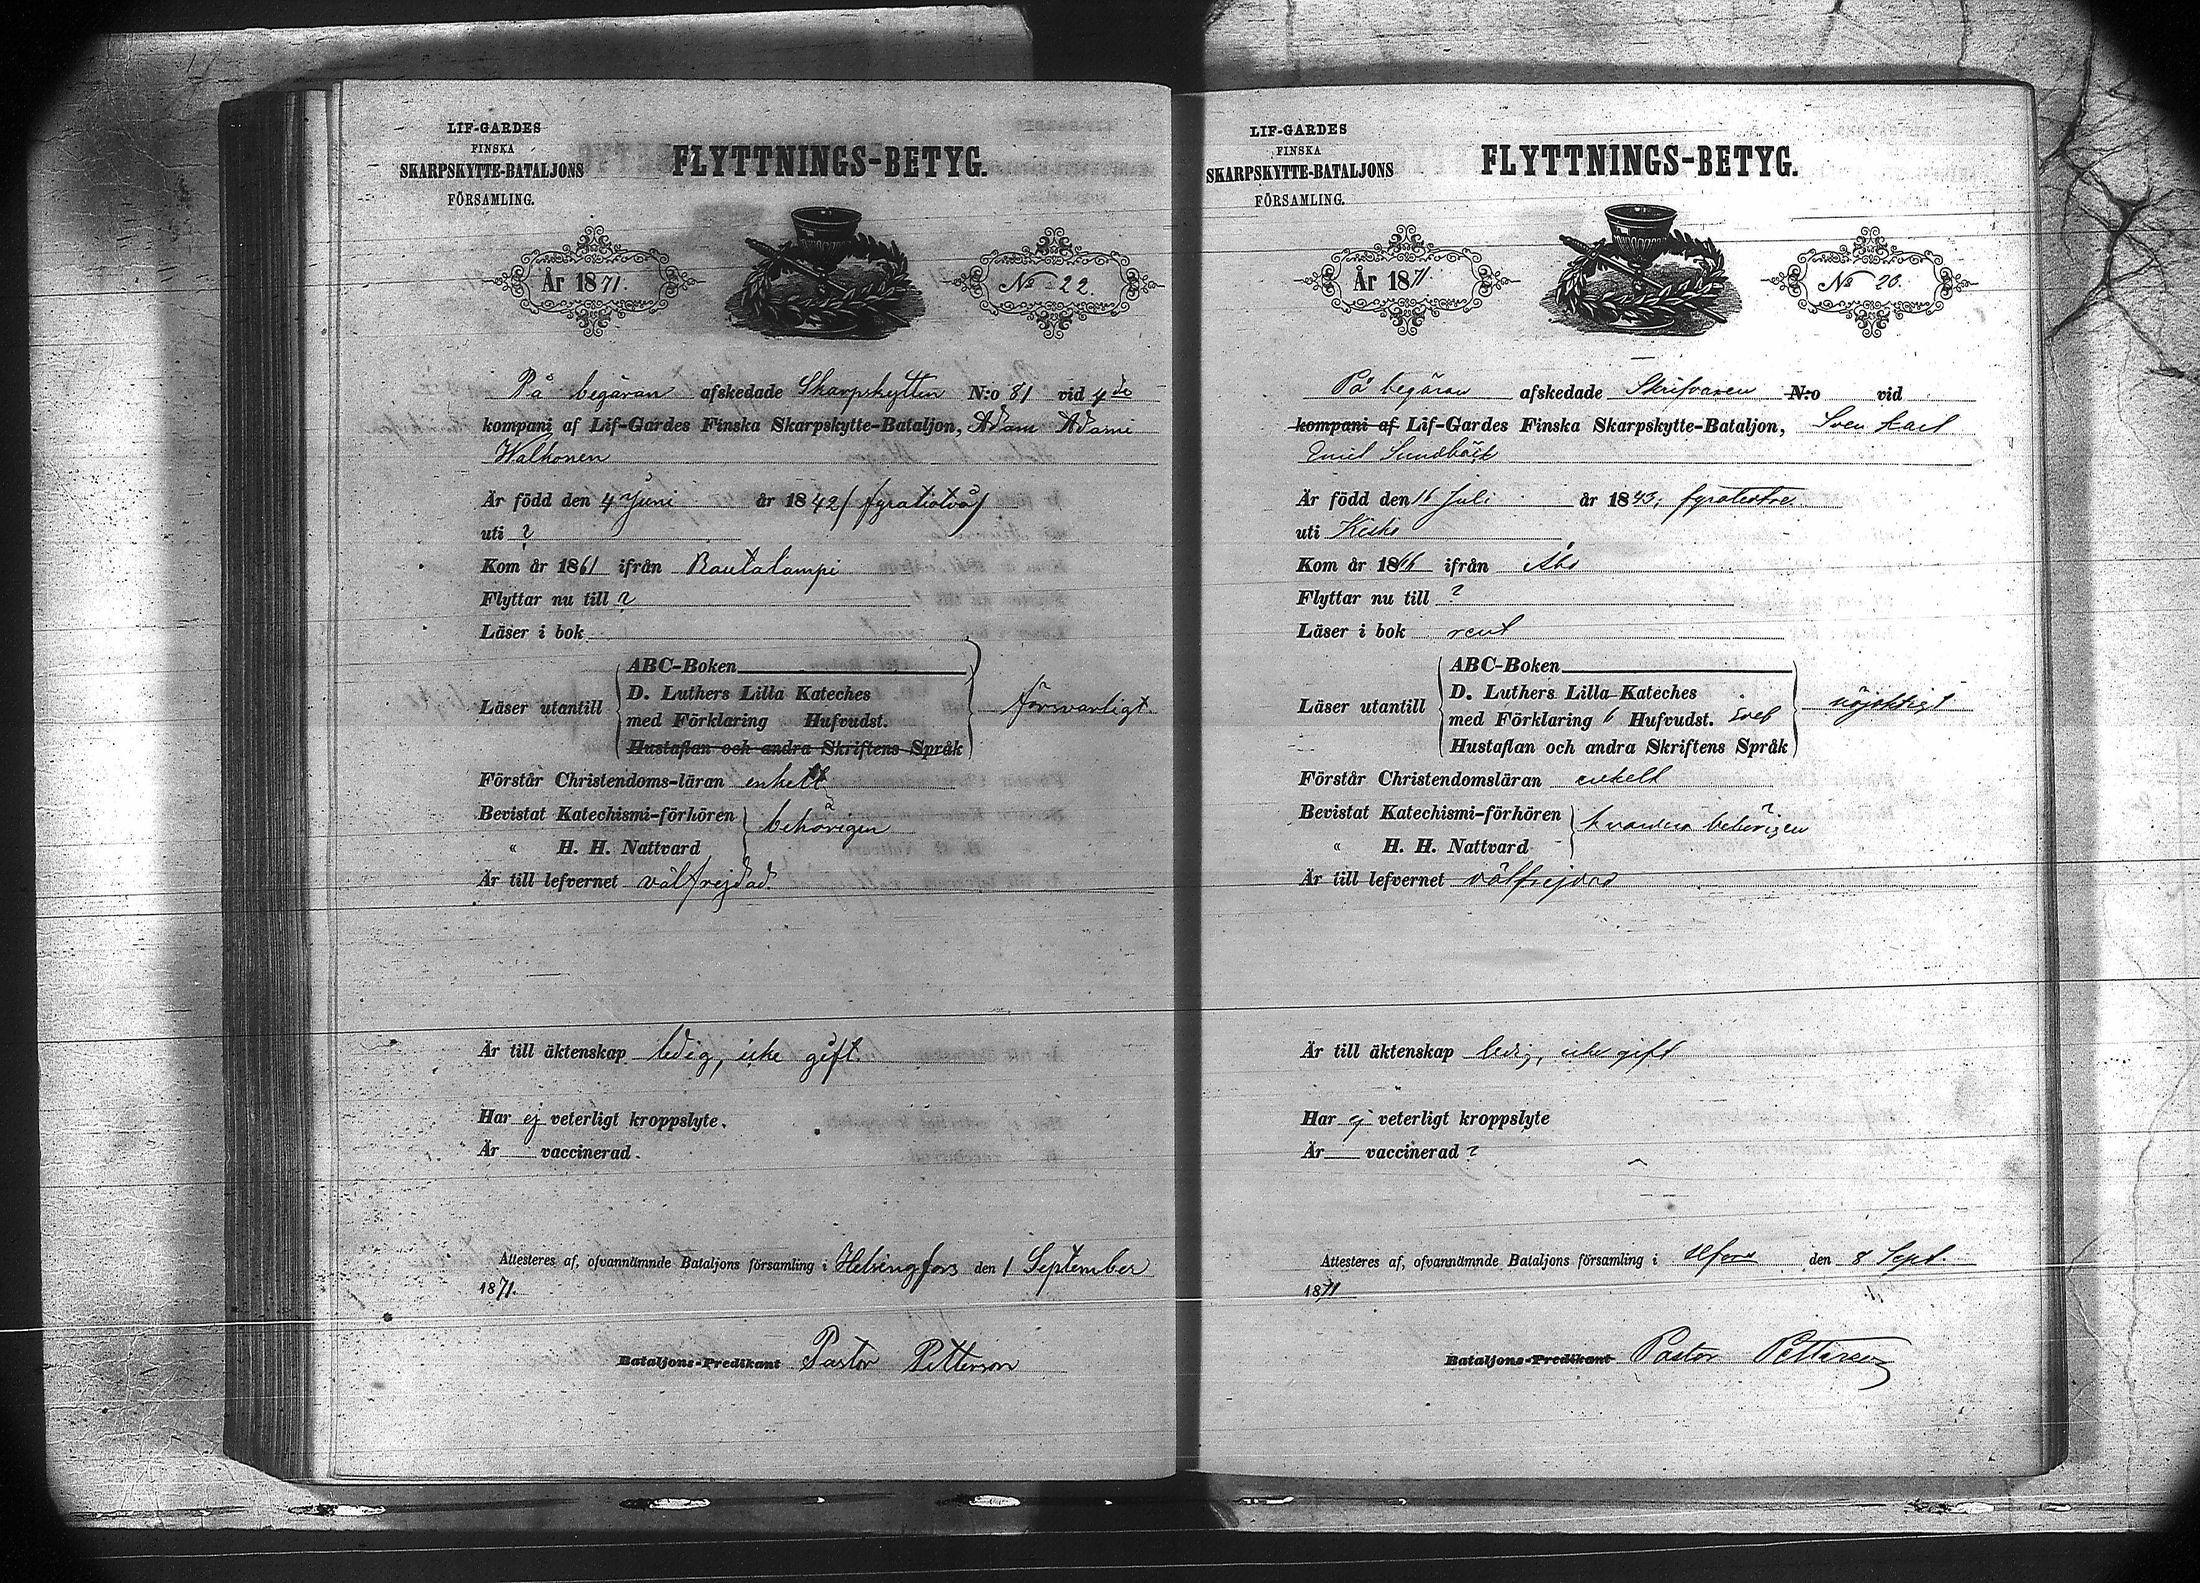 LIF-GARDES
FINSKA
SKARPSKYTTE-BATALJONS
FÖRSAMLING.
FLYTTNINGS-BETYG.
År 1871.
No 22.
På begäran afskedade Skarpskytten N:o 81 vid 4de
kompani af Lif-Gardes Finska Skarpskytte-Bataljon, Adam Adami
Walkonen
Är född den 4 Juni år 1842 (fyratiotvå)
uti ?
Kom år 1861 ifrån Rautalampi
Flyttar nu till ?
Läser i bok
ABC-Boken
Läser utantill D. Luthers Lilla Kateches
med Förklaring Hufvudst. försvarligt.
Hustaflan och andra Skriftens Språk
Förstår Christendoms-läran enkelt
Bevistat Katechismi-förhören behörigen
" H. H. Nattvard
Är till lefvernet välfrejdad.
Är till äktenskap ledig, icke gift.
Har ej veterligt kroppslyte.
Är vaccinerad.
Attesteres af, ofvannämnde Bataljons församling i Helsingfors den 1 September
1871.
Bataljons-Predikant Pastor Petterson
LIF-GARDES
FINSKA
SKARPSKYTTE-BATALJONS
FÖRSAMLING.
FLYTTNINGS-BETYG.
År 1871.
No 20.
På begäran afskedade Skrifvaren N:o vid
kompani af Lif-Gardes Finska Skarpskytte-Bataljon, Sven Karl
Emil Sundbäck
Är född den 16 Juli år 1843, fyratiotre.
uti Kisko
Kom år 1866 ifrån Åbo
Flyttar nu till ?
Läser i bok rent
ABC-Boken
Läser utantill D. Luthers Lilla Kateches
med Förklaring 6 Hufvudst. nöjaktigt
Hustaflan och andra Skriftens Språk
Förstår Christendomsläran enkelt
Bevistat Katechismi-förhören behörigen
" H. H. Nattvard
Är till lefvernet välfrejdad
Är till äktenskap ledig, icke gift
Har ej veterligt kroppslyte
Är vaccinerad ?
Attesteres af, ofvannämnde Bataljons församling i Hfors den 8 Sept.
1871
Bataljons-Predikant Pastor Petterson